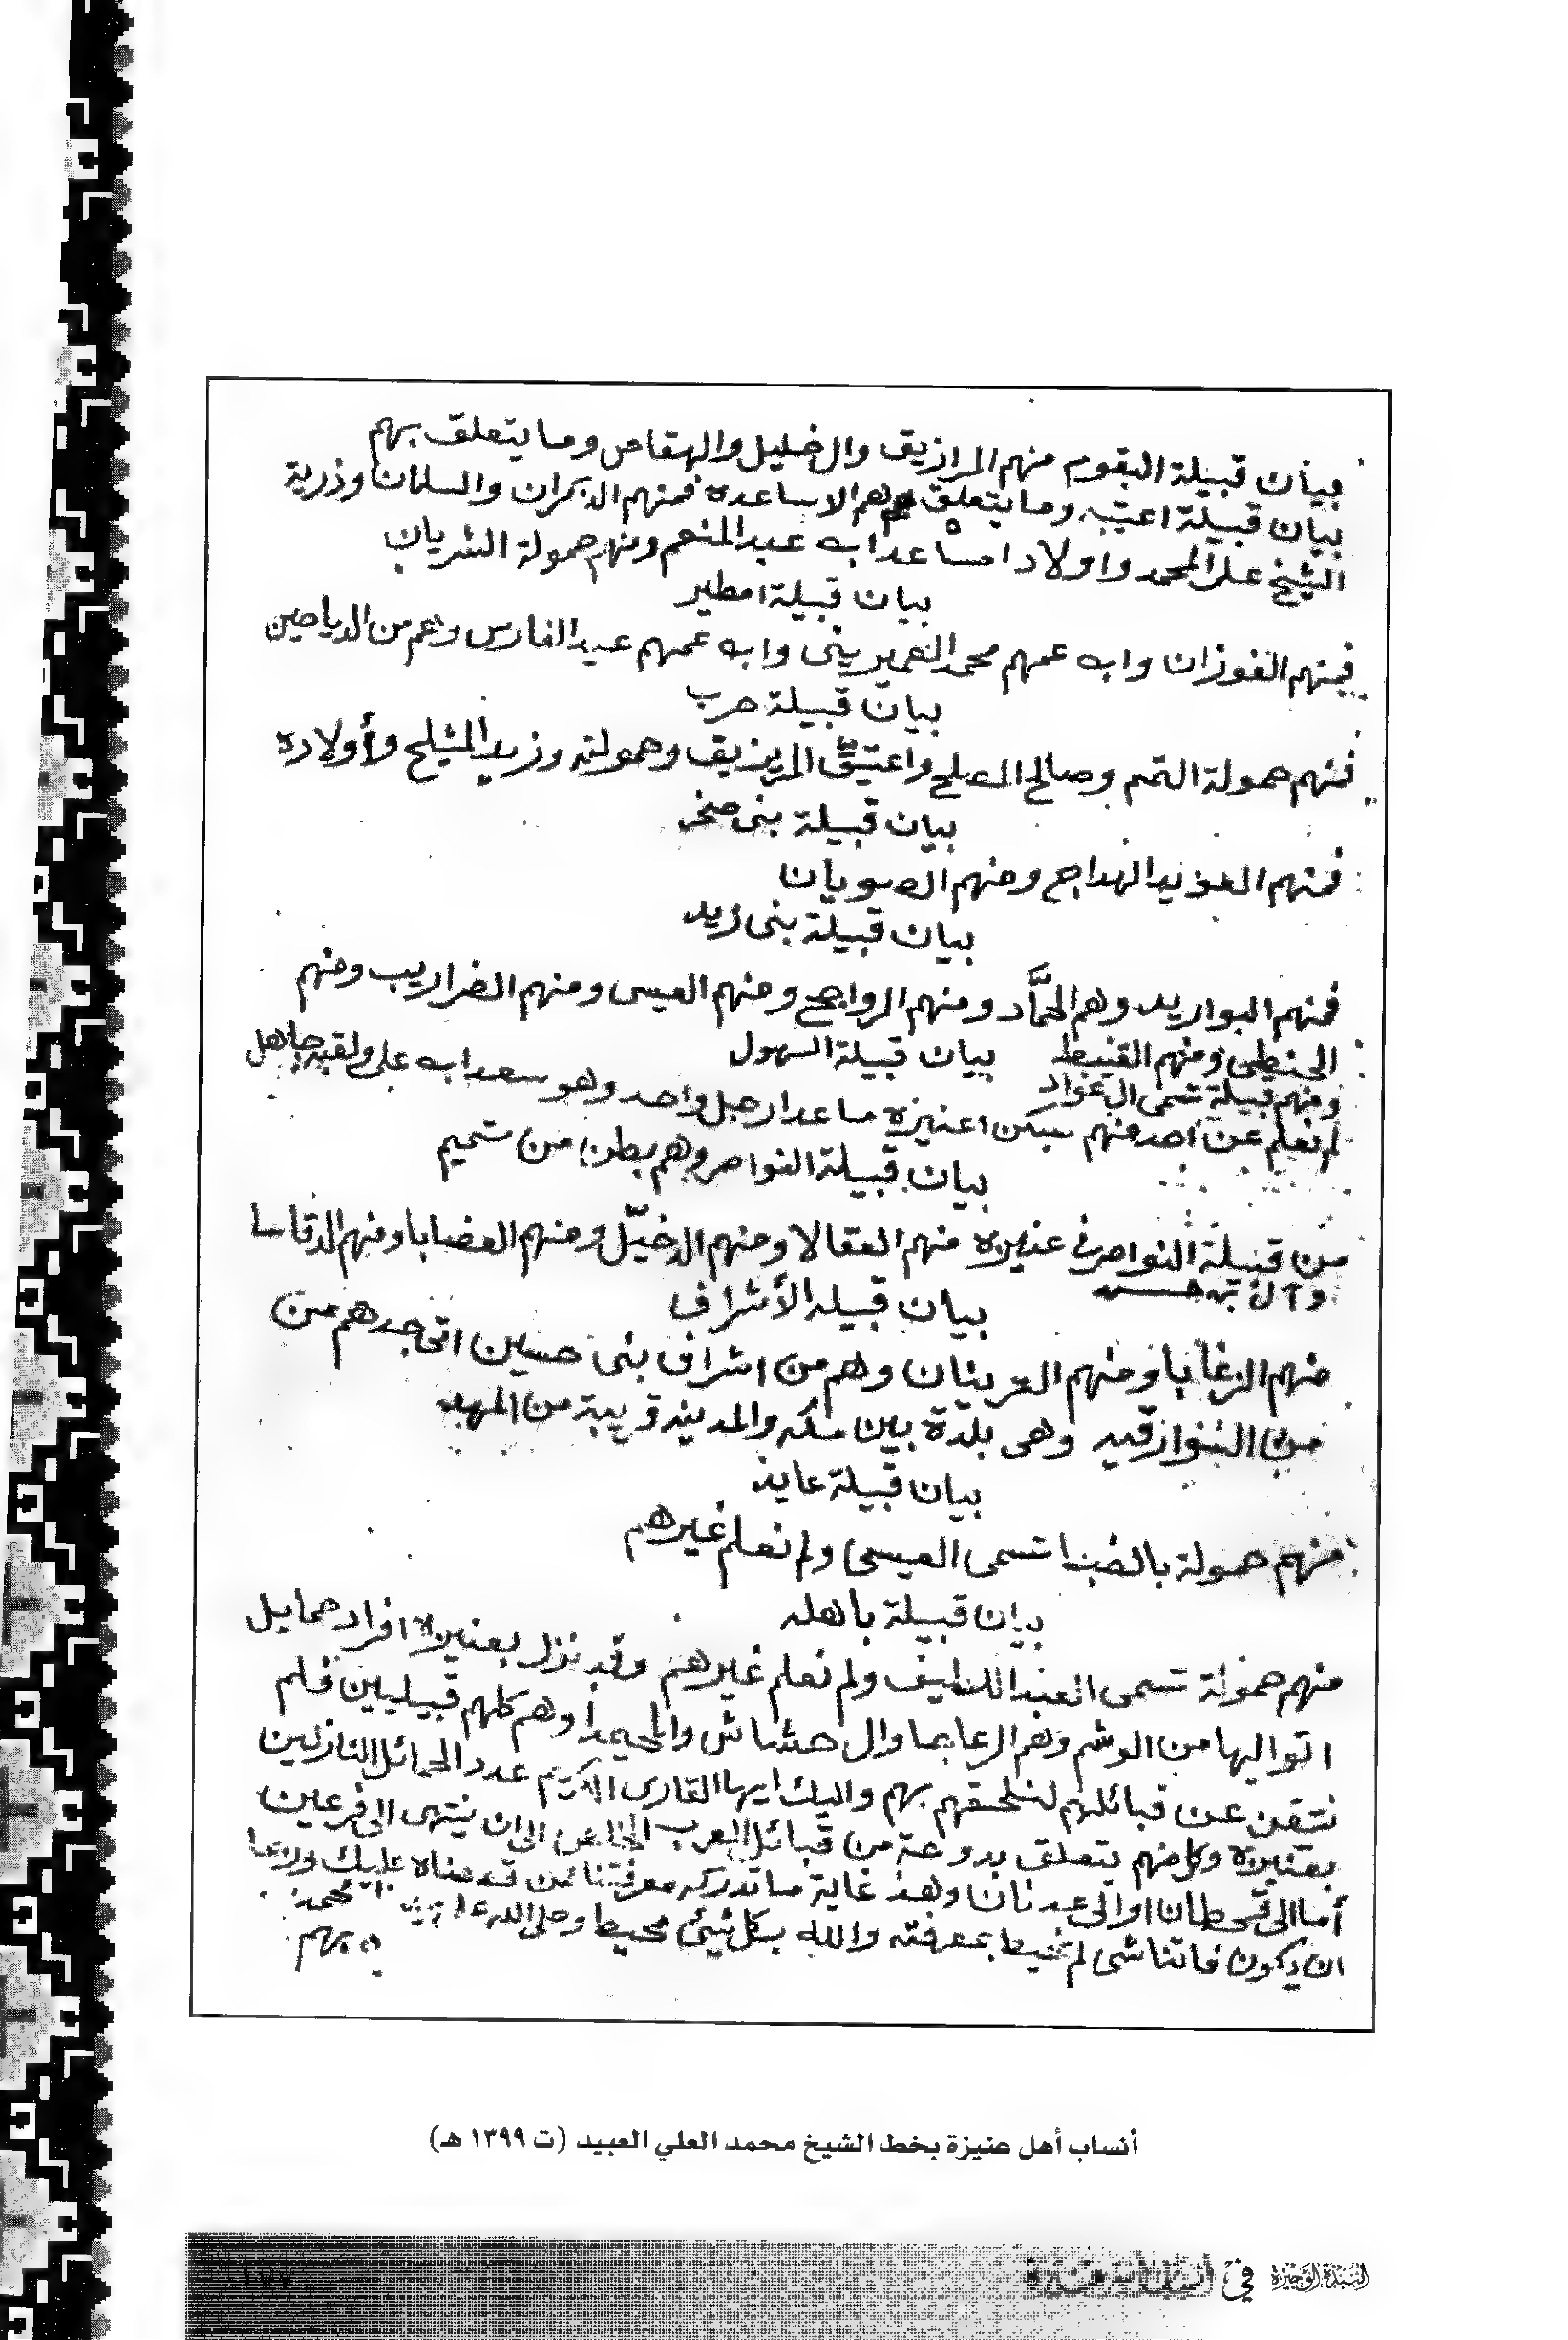 بيان قبيلة البقوم منهم المرازيق وال خليل والهقاص وما يتعلق بهم
بيان قبيلة اعتيبه وما يتعلق وهم الاساعدة فمنهم الذكران والسلمان وذرية
الشيخ على المحمد واولاد امساعد ابه عبد المنعم ومنهم حمولة الشريان
بيان قبيلة امطير
فمنهم الفوزان وابه عمهم محمد العميرينى وابه عمهم عبيد الفارس وهم من الدياحين
بيان قبيلة حرب
فمنهم حمولة التمم وصالح المصلح واعتيق المريزيق وحمولته وزيد المشلح وأولاده
بيان قبيلة بنى صخر
فمنهم العويد الهداج ومنهم الصويان
بيان قبيلة بنى زيد
فمنهم البواريد وهم الحمَّاد ومنهم الرواجح ومنهم العيسى ومنهم الضراريب ومنهم
الحنيطى ومنهم القنيبط بيان قبيلة السهول
ومنهم قبيلة تسمى ال عواد
لم نعلم عن احد منهم يسكن اعنيزه ماعدا رجل واحد وهو سعد ابه على ولقبه جاهل
بيان قبيلة النواصر وهم بطن من تميم
من قبيلة النواصر في عنيزه منهم العقالا ومنهم الدخيّل ومنهم العضابا ومنهم الدقاسا
وآل
بيان قبيلة الأشراف
منهم الزغابا ومنهم العرينان وهم من اشراف بنى حسين اتى جدهم من
من السوارقيه وهى بلدة بين مكه والمدينه قريبة من المهد
بيان قبيلة عايذ
منهم حمولة بالضبط تسمى العيسى ولم نعلم غيرهم
بيان قبيلة باهله
منهم حمولة تسمى العبد اللطيف ولم نعلم غيرهم وقد نزل بعنيزه افراد حمايل
اتوا اليها من الوشم وهم الرعابما وال حشاش والمحيمدا وهم كلهم قبيليين فلم
نتيقن عن قبائلهم لنلحقهم بهم واليك ايها القارى الكريم عدد الحمائل النازلين
بعنيزه وكل منهم يتعلق بدوحة من قبائل العرب الى ان ينتهى الى فرعين
أما الى قحطان او الى عبدنان وهذ غاية ما تدركه معرفتنا عليك وربما
ان يكون فاتنا شى لم نحيط بمعرفته والله بكل شيئ محيط وصلى الله على محمد
أنساب أهل عنيزة بخط الشيخ محمد العلي العبيد (ت ١٣٩٩ هـ)
النبذة الوجيزة في أنساب أسر عنيزة